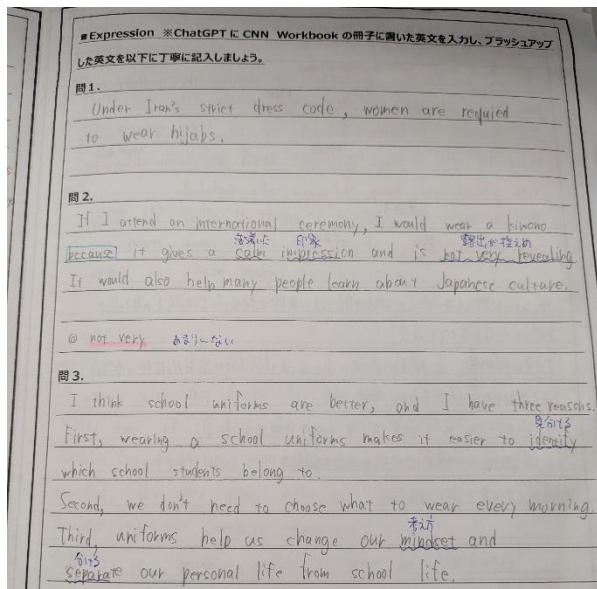 ■Expression ※ChatGPT に CNN Workbook の冊子に書いた英文を入力し、ブラッシュアップ
した英文を以下に丁寧に記入しましょう。
問1.
Under Iran's strict dress code, women are requied
to wear hijabs.
問2.
If I attend an international ceremony, I would wear a kimono
落着いた 印象 露出が控えめ
because it gives a calm impression and is not very revealing
It would also help many people learn about Japanese culture.
◎ not very あまり〜ない
問3.
I think school uniforms are better, and I have three reasons.
見分ける
First, wearing a school uniforms makes it easier to identify
which school students belong to.
Second, we don't need to choose what to wear every morning.
考え方
Third, uniforms help us change our mindset and
分ける
separate our personal life from school life.